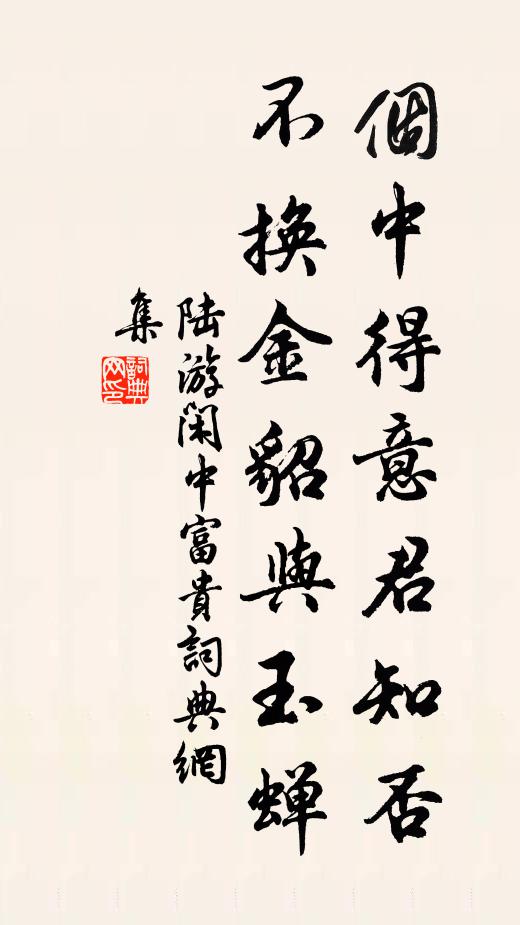 個中得意君知否
不換金貂與玉蟬
陆游閑中富貴詞典網
集
詞典
网印